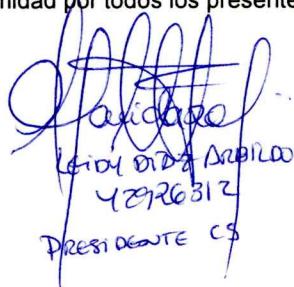 midad por todos los presente
LEIDY DIAZ ARBILDO
42926312
PRESIDENTE CS